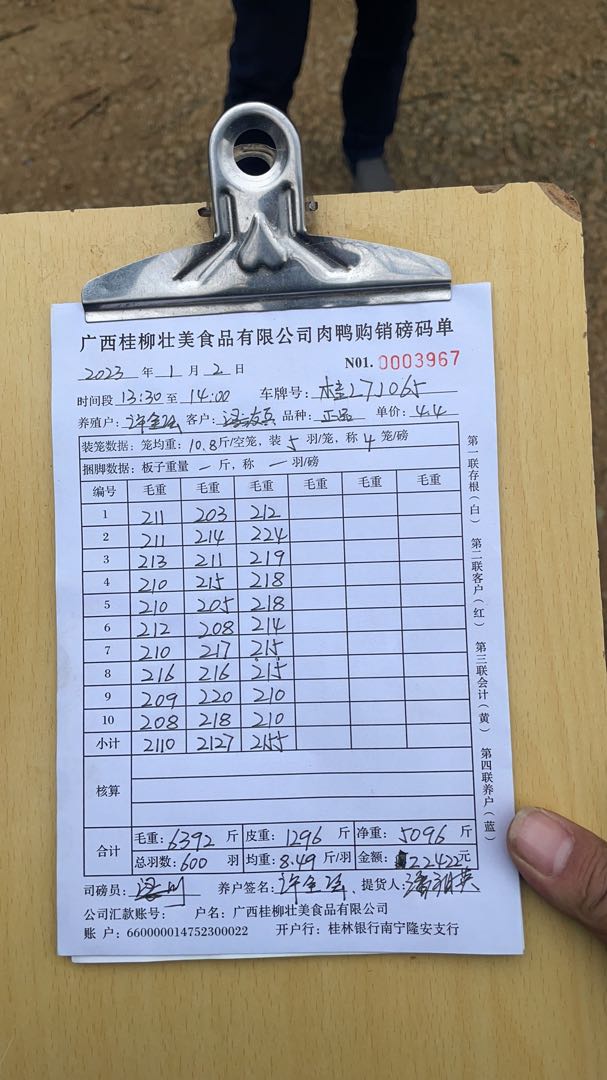 广西桂柳壮美食品有限公司肉鸭购销磅码单
2023 年 1 月 2 日 N01. 0003967
时间段 13:30 至 14:00 车牌号: 桂L71065
养殖户: 许全 客户: 品种: 正品 单价: 4.4
装笼数据: 笼均重: 10.8 斤/空笼, 装 5 羽/笼, 称 4 笼/磅
捆脚数据: 板子重量 一 斤, 称 一 羽/磅
编号 毛重 毛重 毛重 毛重 毛重 毛重
1 211 203 212
2 211 214 224
3 213 211 219
4 210 215 218
5 210 205 218
6 212 208 214
7 210 217 215
8 216 216 215
9 209 220 210
10 208 218 210
小计 2110 2127 2155
核算
合计 毛重: 6392 斤 皮重: 1296 斤 净重: 5096 斤
总羽数: 600 羽 均重: 8.49 斤/羽 金额: 22422 元
司磅员: 养户签名: 许全 、提货人:
公司汇款账号: 户名: 广西桂柳壮美食品有限公司
账 户: 660000014752300022 开户行: 桂林银行南宁隆安支行
第一联存根(白) 第二联客户(红) 第三联会计(黄) 第四联养户(蓝)